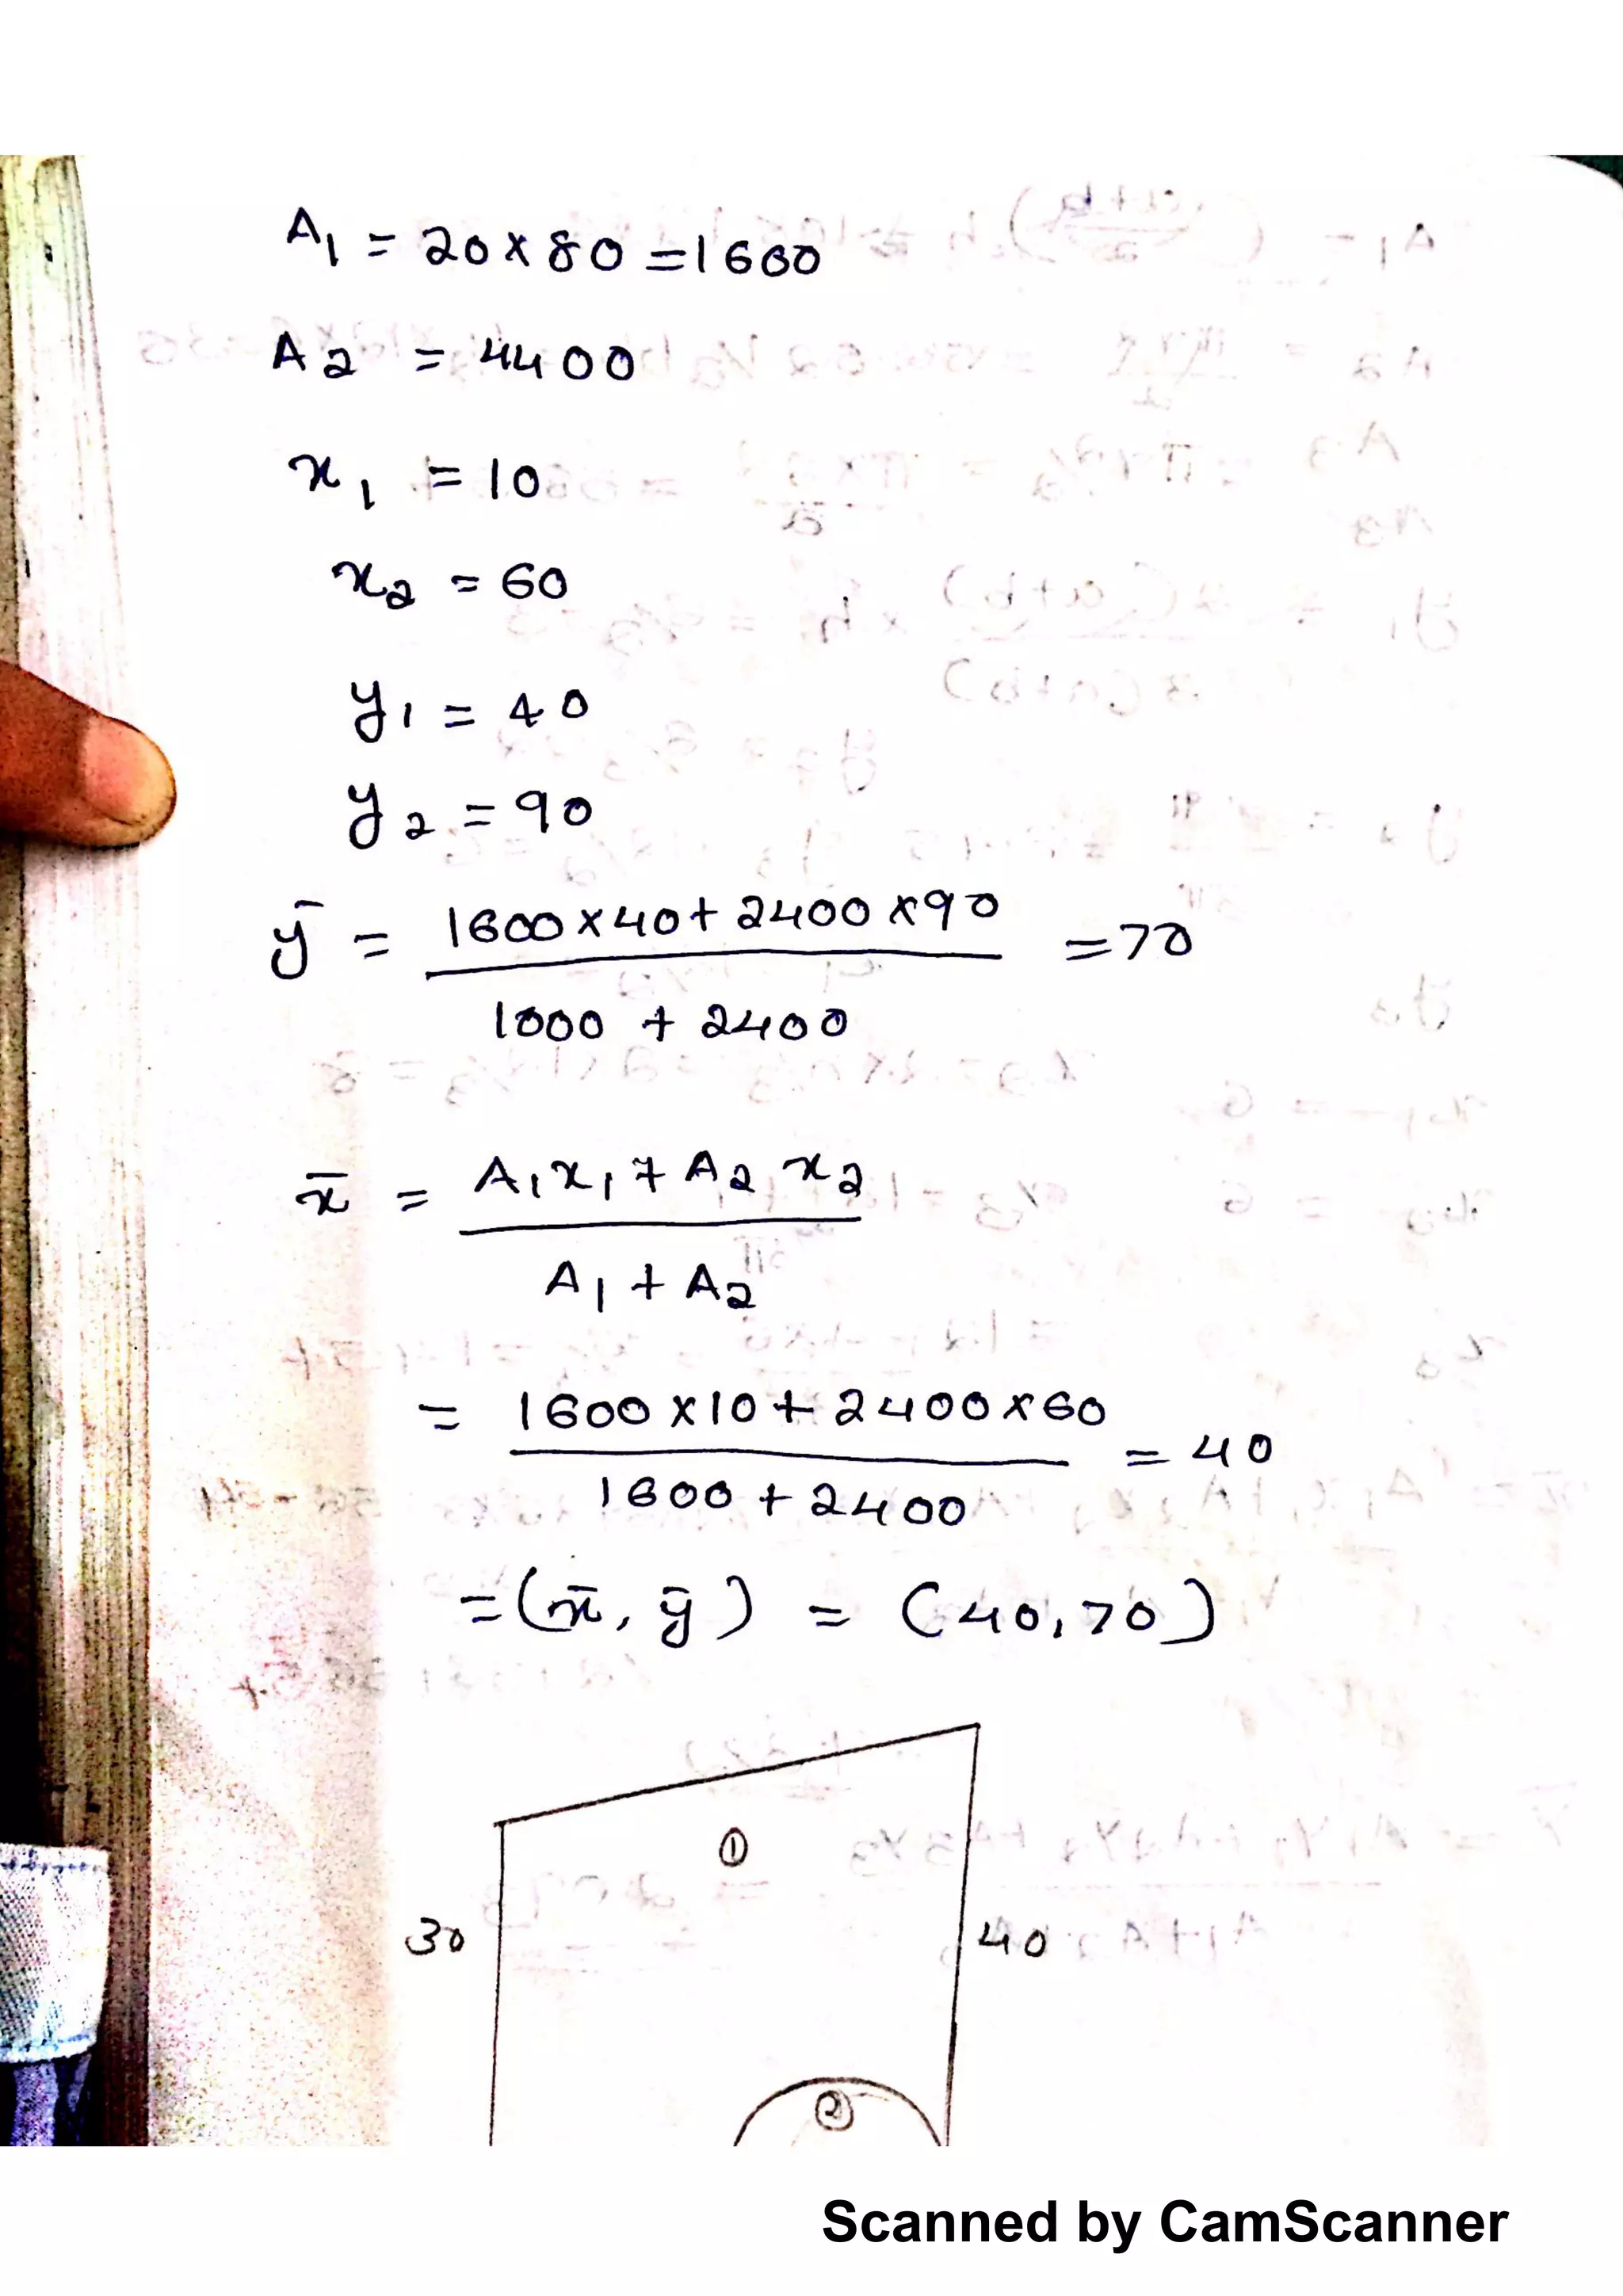 A1 = 20 x 80 = 1600
A2 = 4400
x1 = 10
x2 = 60
y1 = 40
y2 = 90
ȳ = (1600 x 40 + 2400 x 90) / (1000 + 2400) = 70
x̄ = (A1x1 + A2x2) / (A1 + A2)
= (1600 x 10 + 2400 x 60) / (1600 + 2400) = 40
= (x̄, ȳ) = (40, 70)
①
30
40
②
Scanned by CamScanner